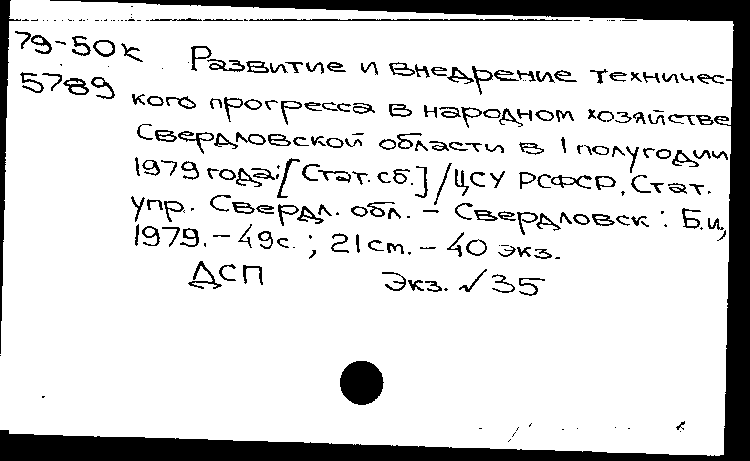 79-50к Развитие и внедрение техничес-
5789 кого прогресса в народном хозяйстве
Свердловской области в I полугодии
1979 года: [Стат. сб.] / ЦСУ РСФСР, Стат.
упр. Свердл. обл. – Свердловск: Б.и.,
1979. – 49с.; 21см. – 40 экз.
ДСП Экз. √35